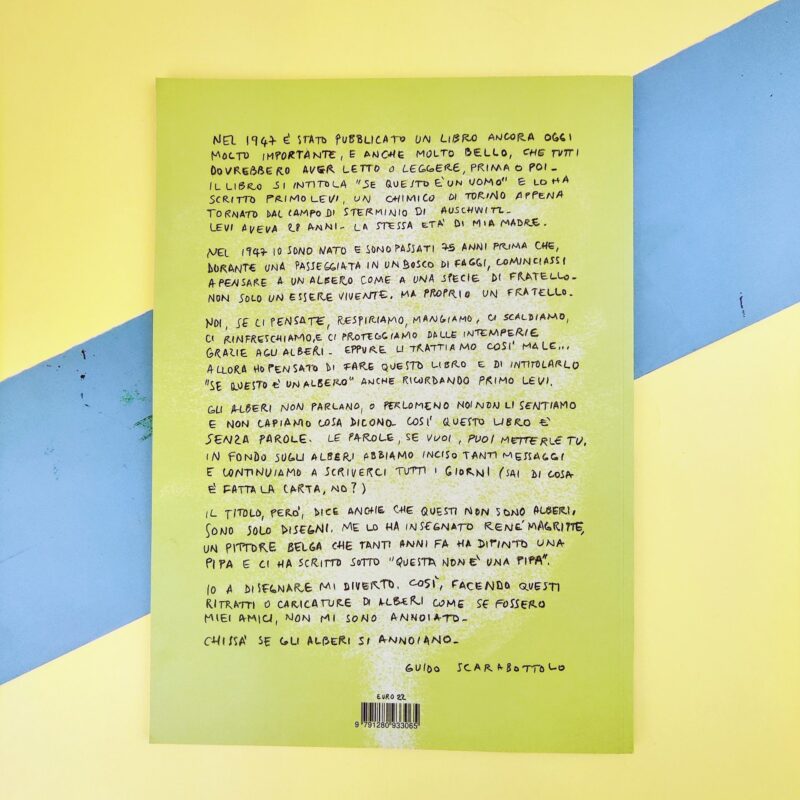 NEL 1947 È STATO PUBBLICATO UN LIBRO ANCORA OGGI
MOLTO IMPORTANTE, E ANCHE MOLTO BELLO, CHE TUTTI
DOVREBBERO AVER LETTO O LEGGERE, PRIMA O POI-
IL LIBRO SI INTITOLA "SE QUESTO È UN UOMO" E LO HA
SCRITTO PRIMO LEVI, UN CHIMICO DI TORINO APPENA
TORNATO DAL CAMPO DI STERMINIO DI AUSCHWITZ-
LEVI AVEVA 28 ANNI- LA STESSA ETÀ DI MIA MADRE.
NEL 1947 IO SONO NATO E SONO PASSATI 75 ANNI PRIMA CHE,
DURANTE UNA PASSEGGIATA IN UN BOSCO DI FAGGI, COMINCIASSI
A PENSARE A UN ALBERO COME A UNA SPECIE DI FRATELLO-
NON SOLO UN ESSERE VIVENTE. MA PROPRIO UN FRATELLO-
NOI, SE CI PENSATE, RESPIRIAMO, MANGIAMO, CI SCALDIAMO,
CI RINFRESCHIAMO, E CI PROTEGGIAMO DALLE INTEMPERIE
GRAZIE AGLI ALBERI- EPPURE LI TRATTIAMO COSÌ MALE...
ALLORA HO PENSATO DI FARE QUESTO LIBRO E DI INTITOLARLO
"SE QUESTO È UN ALBERO" ANCHE RICORDANDO PRIMO LEVI.
GLI ALBERI NON PARLANO, O PERLOMENO NOI NON LI SENTIAMO
E NON CAPIAMO COSA DICONO. COSÌ QUESTO LIBRO È
SENZA PAROLE. LE PAROLE, SE VUOI, PUOI METTERLE TU.
IN FONDO SUGLI ALBERI ABBIAMO INCISO TANTI MESSAGGI
E CONTINUIAMO A SCRIVERCI TUTTI I GIORNI (SAI DI COSA
È FATTA LA CARTA, NO?)
IL TITOLO, PERÒ, DICE ANCHE CHE QUESTI NON SONO ALBERI,
SONO SOLO DISEGNI. ME LO HA INSEGNATO RENÉ MAGRITTE,
UN PITTORE BELGA CHE TANTI ANNI FA HA DIPINTO UNA
PIPA E CI HA SCRITTO SOTTO "QUESTA NON È UNA PIPA".
IO A DISEGNARE MI DIVERTO. COSÌ, FACENDO QUESTI
RITRATTI O CARICATURE DI ALBERI COME SE FOSSERO
MIEI AMICI, NON MI SONO ANNOIATO-
CHISSÀ SE GLI ALBERI SI ANNOIANO-
GUIDO SCARABOTTOLO
EURO 22
9 791280 933065